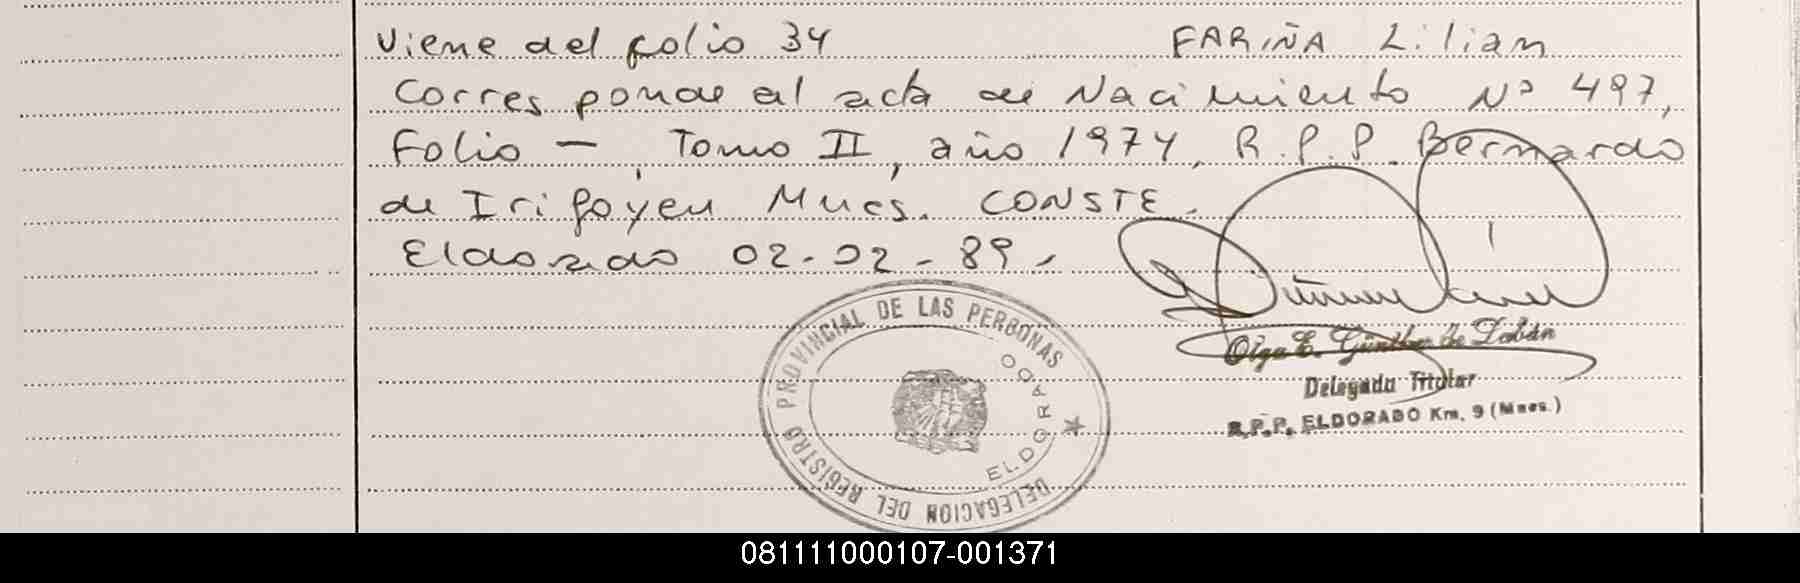 Viene del folio 34 FARIÑA Lilian
Corresponde al acta de Nacimiento Nº 497,
Folio —, Tomo II, año 1974, R.P.P. Bernardo
de Irigoyen Mnes. CONSTE.
Eldorado 02-02-89.
DELEGACION DEL REGISTRO PROVINCIAL DE LAS PERSONAS
ELDORADO
Olga E. Günther de Lobán
Delegada Titular
R.P.P. ELDORADO Km. 9 (Mnes.)
081111000107-001371